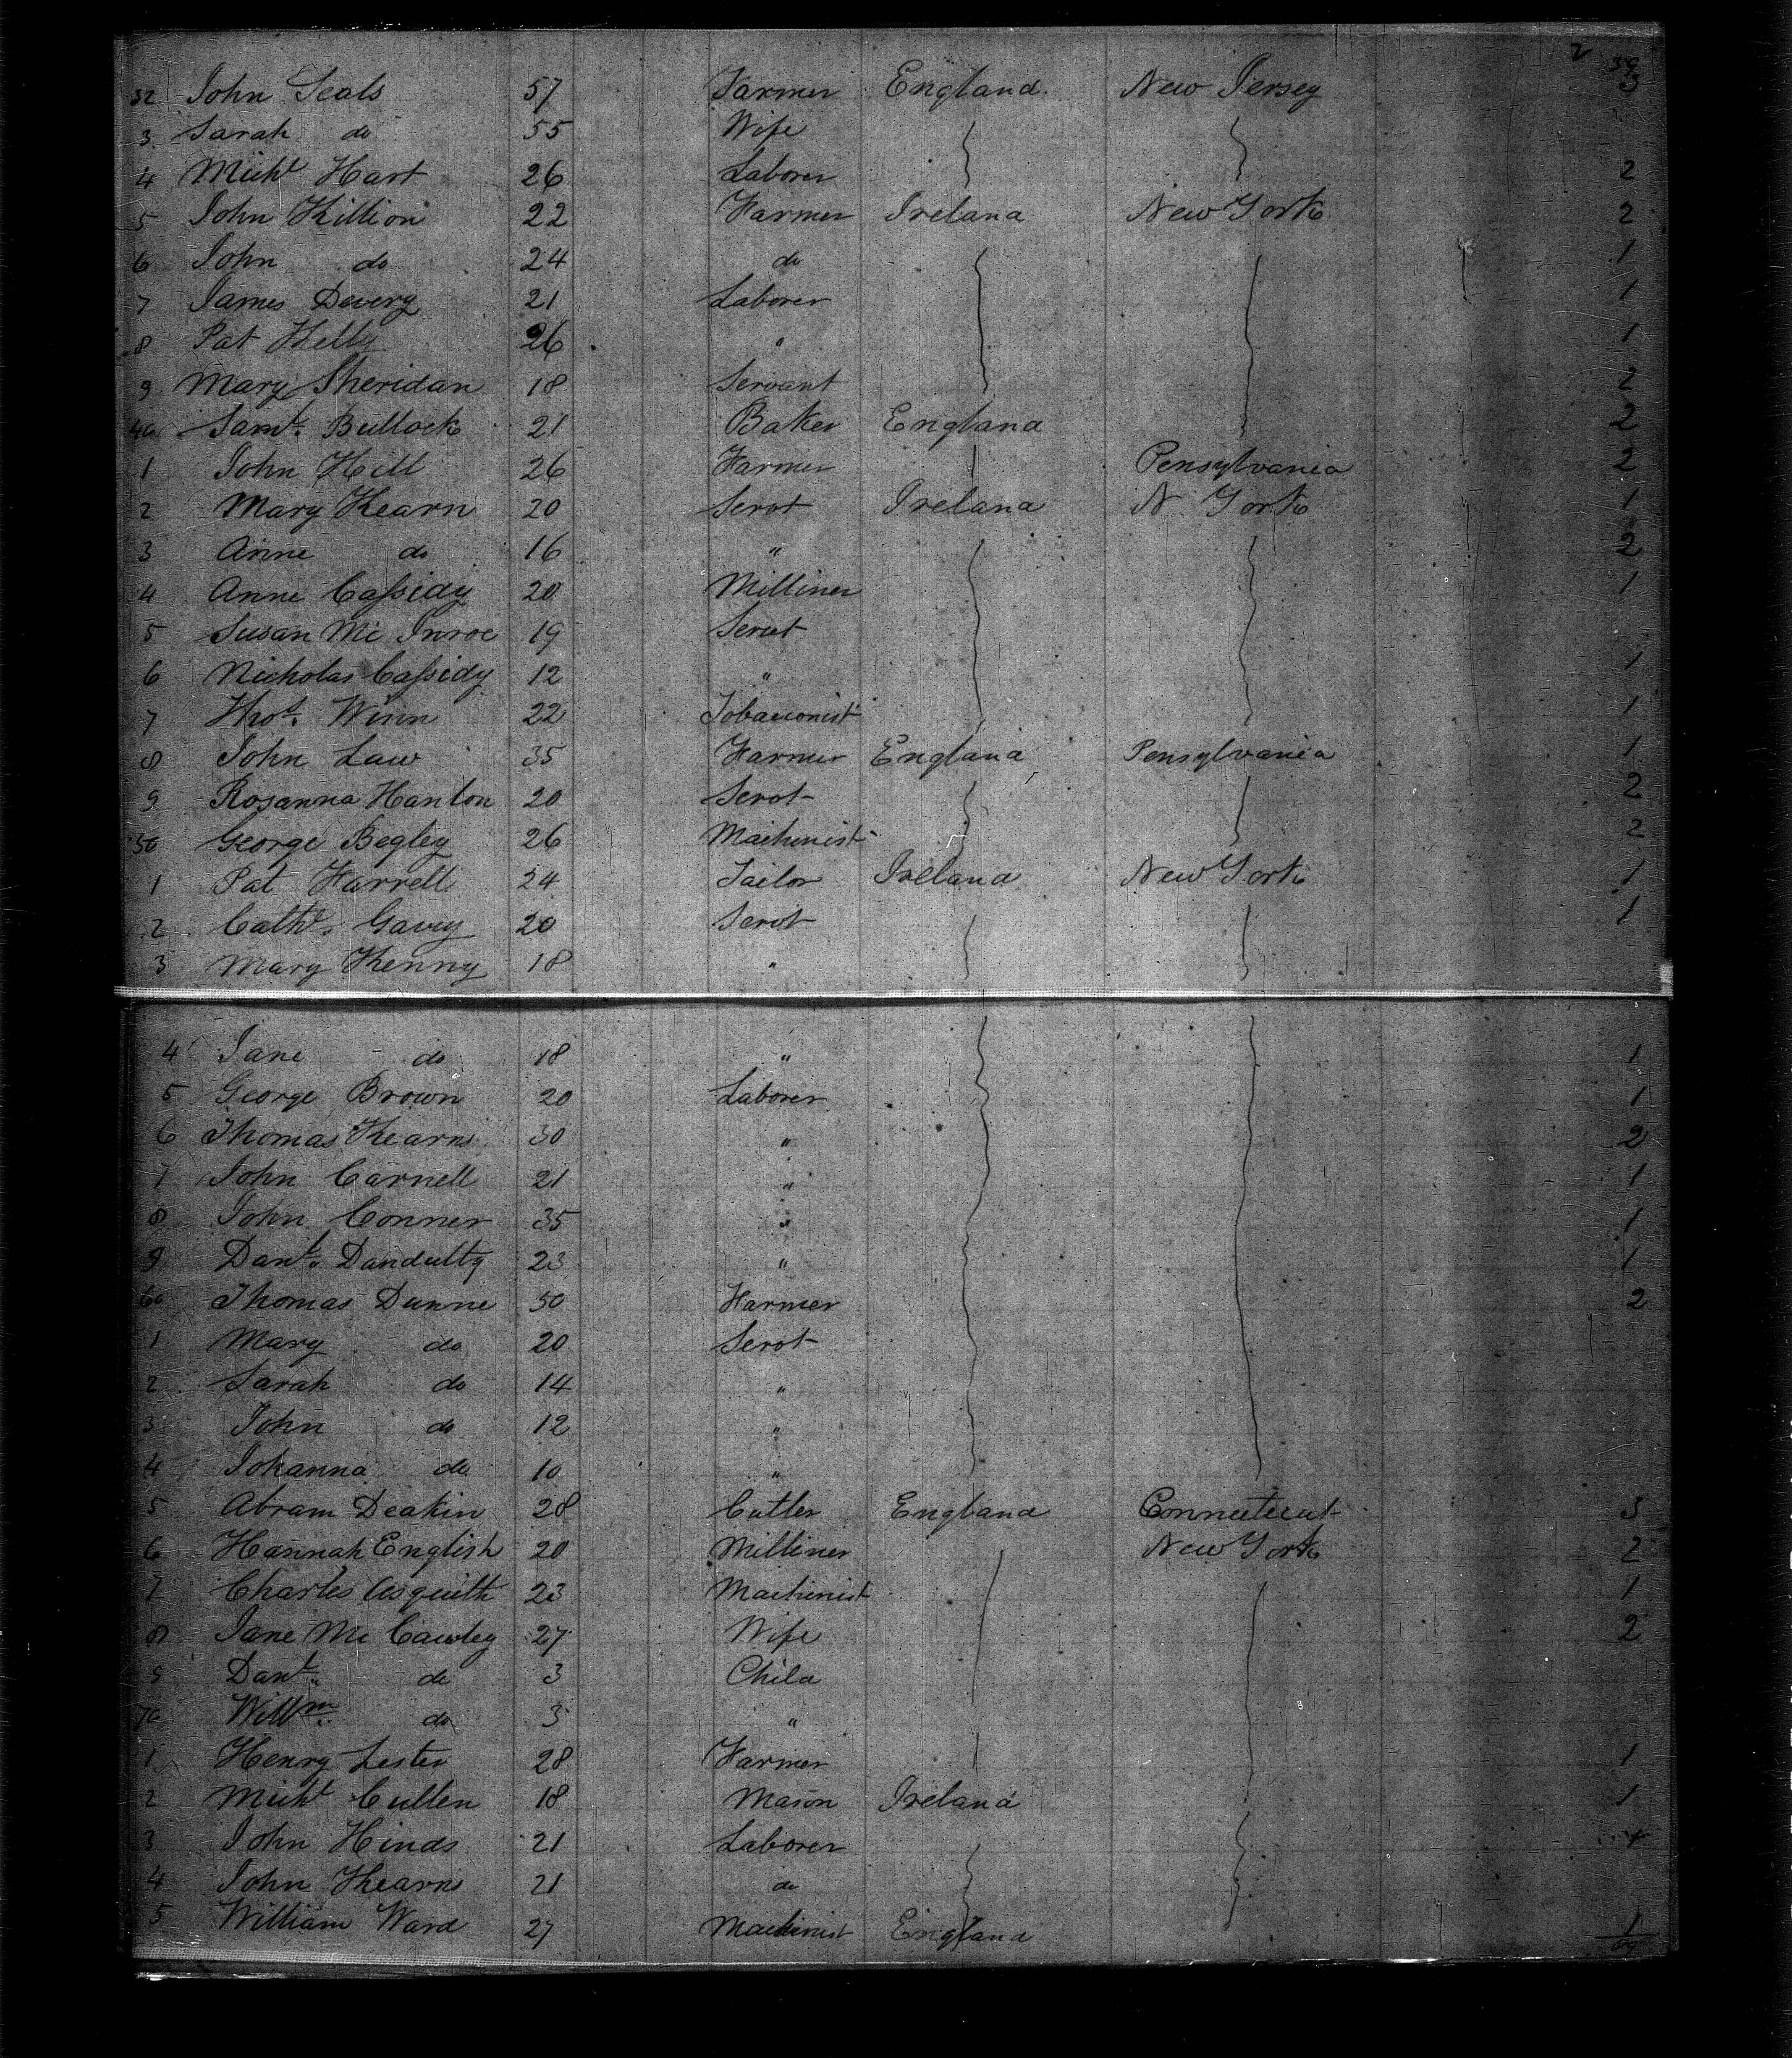 2 39
32 John Seals 57 Farmer England New Jersey 3
3 Sarah do 55 Wife
4 Michl Hart 26 Laborer 2
5 John Killion 22 Farmer Ireland New York 2
6 John do 24 do 1
7 James Devery 21 Laborer 1
8 Pat Kelly 26 " 1
9 Mary Sheridan 18 Servant 2
40 Saml. Bullock 21 Baker England 2
1 John Hill 26 Farmer Pensylvania 2
2 Mary Kearn 20 Servt Ireland N. York 1
3 Anne do 16 " 2
4 Anne Cassidy 20 Milliner 1
5 Susan Mc Inroe 19 Servt
6 Nicholas Cassidy 12 " 1
7 Thos. Winn 22 Tobacconist 1
8 John Law 35 Farmer England Pensylvania 1
9 Rosanna Hanlon 20 Servt 2
50 George Begley 26 Machinist 2
1 Pat Farrell 24 Tailor Ireland New York 1
2 Cathe. Gavey 20 Servt 1
3 Mary Kenny 18 "
4 Jane do 18 " 1
5 George Brown 20 Laborer 1
6 Thomas Kearns 30 " 2
7 John Carnell 21 " 1
8 John Conner 35 " 1
9 Danl. Dandulty 23 " 1
60 Thomas Dunne 50 Farmer 2
1 Mary do 20 Servt
2 Sarah do 14 "
3 John do 12 "
4 Johanna do 10 "
5 Abram Deakin 28 Cutler England Connecticut 3
6 Hannah English 20 Milliner New York 2
7 Charles Asquith 23 Machinist 1
8 Jane Mc Cawley 27 Wife 2
9 Danl. do 3 Child
70 Willm. do 3 "
1 Henry Lester 28 Farmer 1
2 Michl Cullen 18 Mason Ireland 1
3 John Hinds 21 Laborer
4 John Kearns 21 do
5 William Ward 27 Machinist England 1